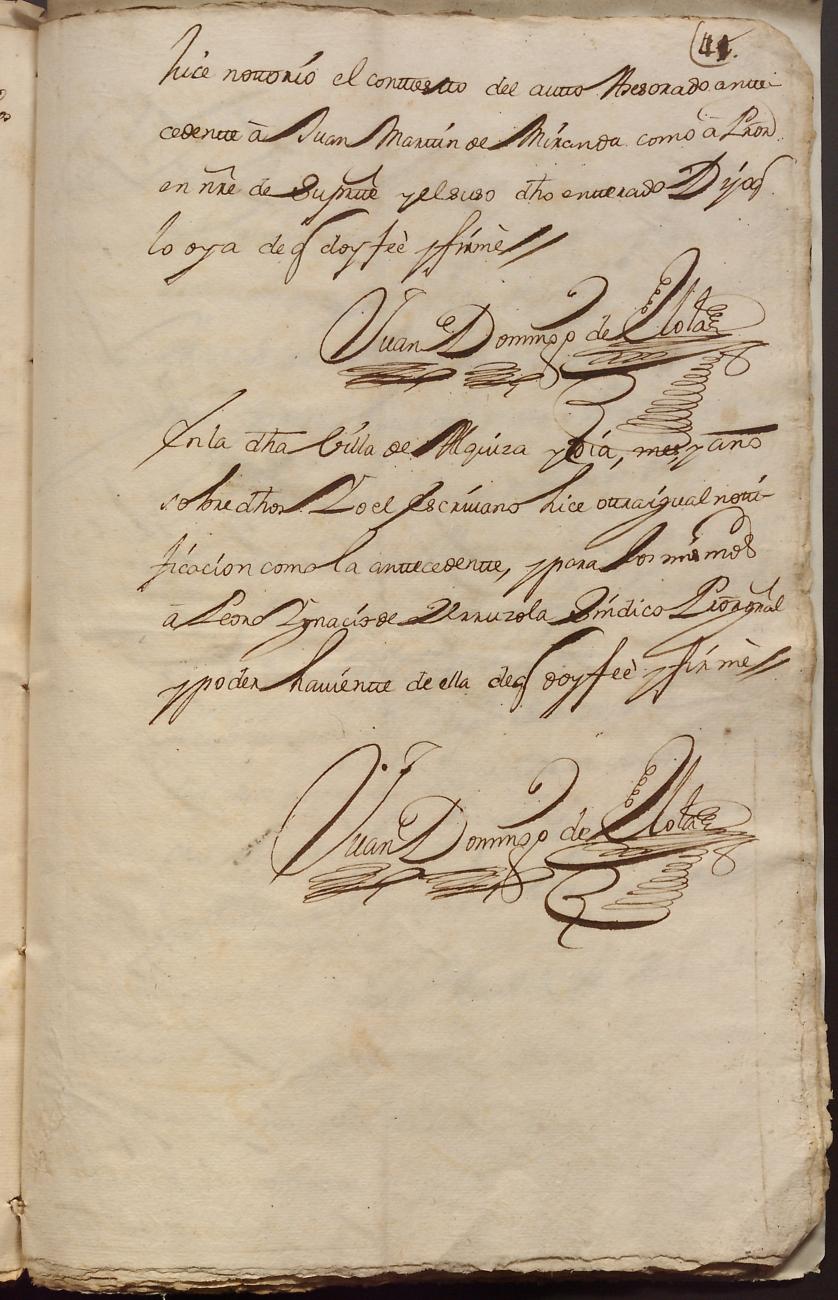 41.
hice nottorio el conttestto del autto Asesorado antte-
cedentte â Juan Marttin de Miranda como â Prōr.
en nr̃e de Su prtte y el suso dho entterado Dijo q̃
lo oya de q̃ doy feè y firmè //
Juan Domingo de Ollota
En la dha Villa de Alquiza y dia, mes, y año
sobre dhos Yo el Escrivano hice ottra igual notti-
ficacion como la anttecedentte, y para los mismos
â Pedro Ygnacio de Urruzola Sindico Prōr gral
y poder havientte de ella de q̃ doy feè y firmè //
Juan Domingo de Ollota